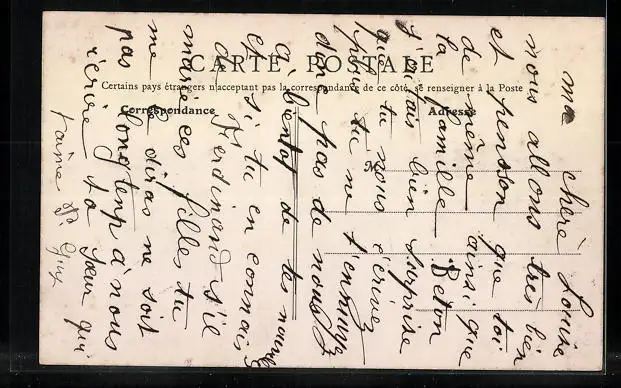 CARTE POSTALE
Certains pays étrangers n'acceptant pas la correspondance de ce côté, se renseigner à la Poste
Correspondance
Adresse
M
ma chère Louise
nous allons très bien
et pensson que toi
de même ainsi que
la famille Beton
j'étais bien surprise
que tu nous écrivez
pour tu ne t'ennuyez
donc pas de nous
a bientot de tes nouvelles
et si tu en connais
Ferdinand s'il
marie ces filles tu
me le diras ne soit
pas longtemp à nous
réecrire ta sœur qui
t'aime